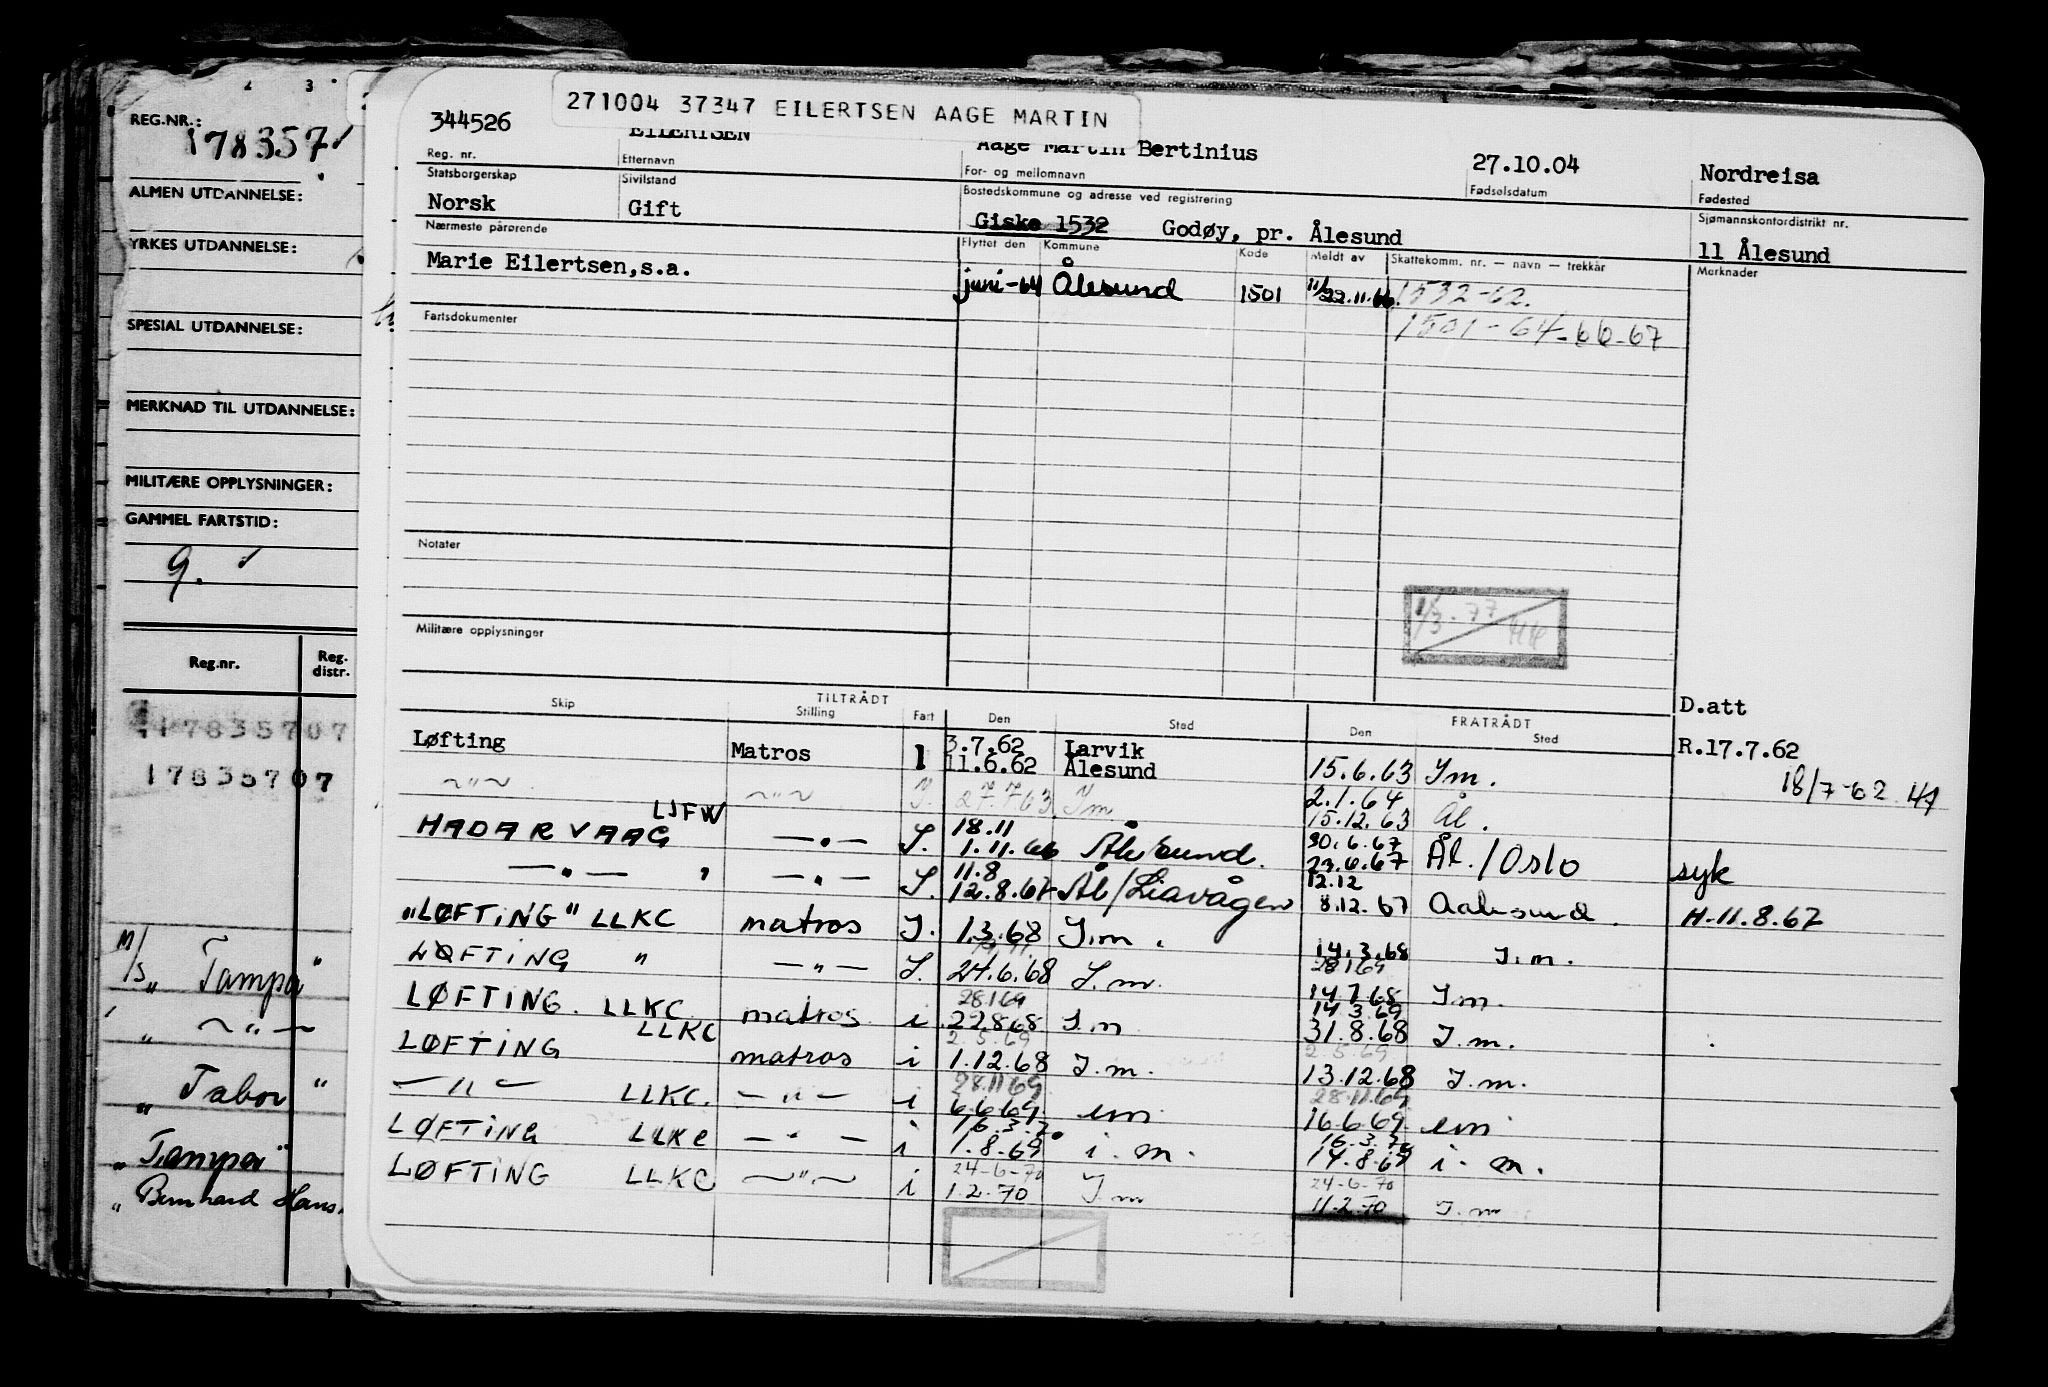 2 3
REG.NR.:
178357
ALMEN UTDANNELSE:
YRKES UTDANNELSE:
SPESIAL UTDANNELSE:
MERKNAD TIL UTDANNELSE:
MILITÆRE OPPLYSNINGER:
GAMMEL FARTSTID:
9.
Reg.nr. Reg. distr.
17835707
17835707
M/S „ Tampa "
„ — " —
„ Tabor "
„ Tampa "
„ Bernhard Hans
271004 37347 EILERTSEN AAGE MARTIN
344526 EILERTSEN Aage Martin Bertinius 27.10.04 Nordreisa
Reg. nr. Etternavn For- og mellomnavn Fødselsdatum Fødested
Statsborgerskap Sivilstand Bostedskommune og adresse ved registrering Sjømannskontordistrikt nr.
Norsk Gift Giske 1532 Godøy, pr. Ålesund 11 Ålesund
Nærmeste pårørende Flyttet den Kommune Kode Meldt av Skattekomm. nr. — navn — trekkår Merknader
Marie Eilertsen,s.a. juni-64 Ålesund 1501 11/22.11.66. 1532-62.
Fartsdokumenter 1501-64-66-67
Notater
1/3-77
Militære opplysninger
D.att
Skip TILTRÅDT Stilling Fart Den Sted Den FRATRÅDT Sted
Løfting Matros 1 3.7.62 Larvik R.17.7.62
11.6.62 Ålesund 15.6.63 I m. 18/7-62
— " — — " — I. 27.7.63 I m 2.1.64
15.12.63 Ål.
HADARVAAG LJFW — " — I. 18.11
1.11.66 Ålesund. 30.6.67
23.6.67 Ål./Oslo syk
— " — " — " — I. 11.8
12.8.67 Ål/Liavågen 12.12
8.12.67 Aalesund. H.11.8.67
"LØFTING" LLKC matros I. 1.3.68 I.m. 14.3.68 I.m.
LØFTING " — " — I. 24.6.68 I.m. 28.1.69
14.7.68 I.m.
LØFTING. LLKC matros i 28.1.69
22.8.68 I.m 14.3.69
31.8.68 I.m.
LØFTING LLKC matros i 2.5.69
1.12.68 I.m. 2.5.69
13.12.68 I.m.
— " — LLKC. — " — i 28.11.69
6.6.69 im 28.11.69
16.6.69 im
LØFTING LLKC — " — i 16.3.70
1.8.69 i.m. 16.3.70
14.8.69 i.m.
LØFTING LLKC — " — i 24-6-70
1.2.70 I.m 24-6-70
11.2.70 I.m